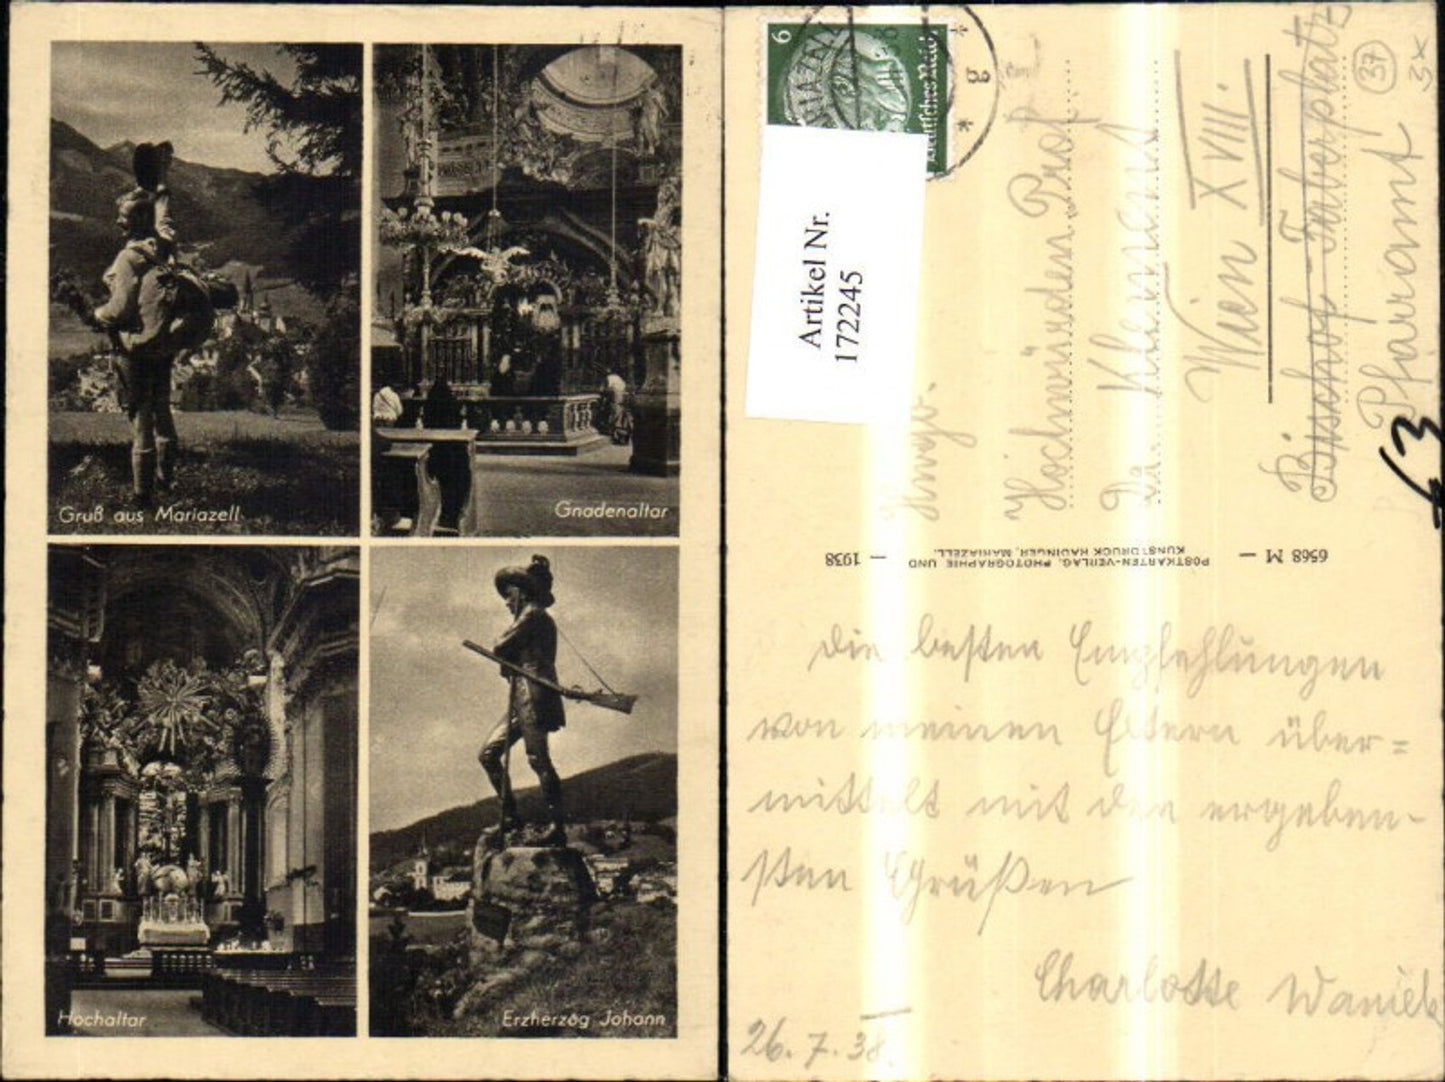 Gruß aus Mariazell
Gnadenaltar
Hochaltar
Erzherzog Johann
6
Deutsches Reich
MARIAZELL
* g *
Artikel Nr.
172245
Hochwürden Prof.
Klemens
Wien XVIII.
Bischof-Faberplatz
Pfarramt
37
3x
6568 M — POSTKARTEN-VERLAG, PHOTOGRAPHIE UND — 1938
KUNSTDRUCK HADINGER, MARIAZELL.
Die besten Empfehlungen
von meinen Eltern über=
mittelt mit den ergeben-
sten Grüßen
Charlotte Waniek
26. 7. 38.